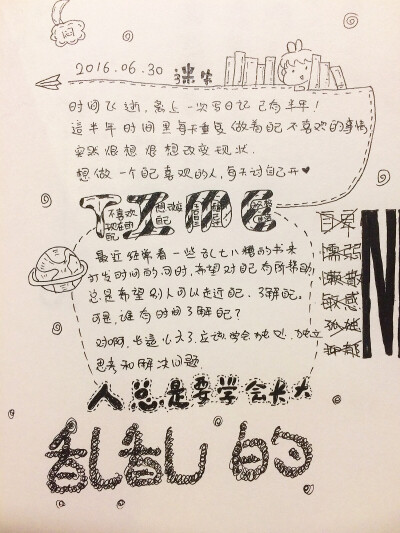 2016.06.30
时间飞逝,离上一次写日记已有半年!
這半年时间里每天重复做着自己不喜欢的事情
突然很想很想改变现状.
想做一个自己喜欢的人,每天对自己开♥
TIME
不喜欢现在的自己
最近经常看一些乱七八糟的书来
打发时间的同时,希望对自己有所帮助
总是希望别人可以走近自己、了解自己。
可是,谁有时间了解自己?
对啊,长這么大了应该学会独处、独立
思考和解决问题.
自卑
懦弱
懒散
敏感
孤独
抑郁
人总是要学会长大
乱乱的